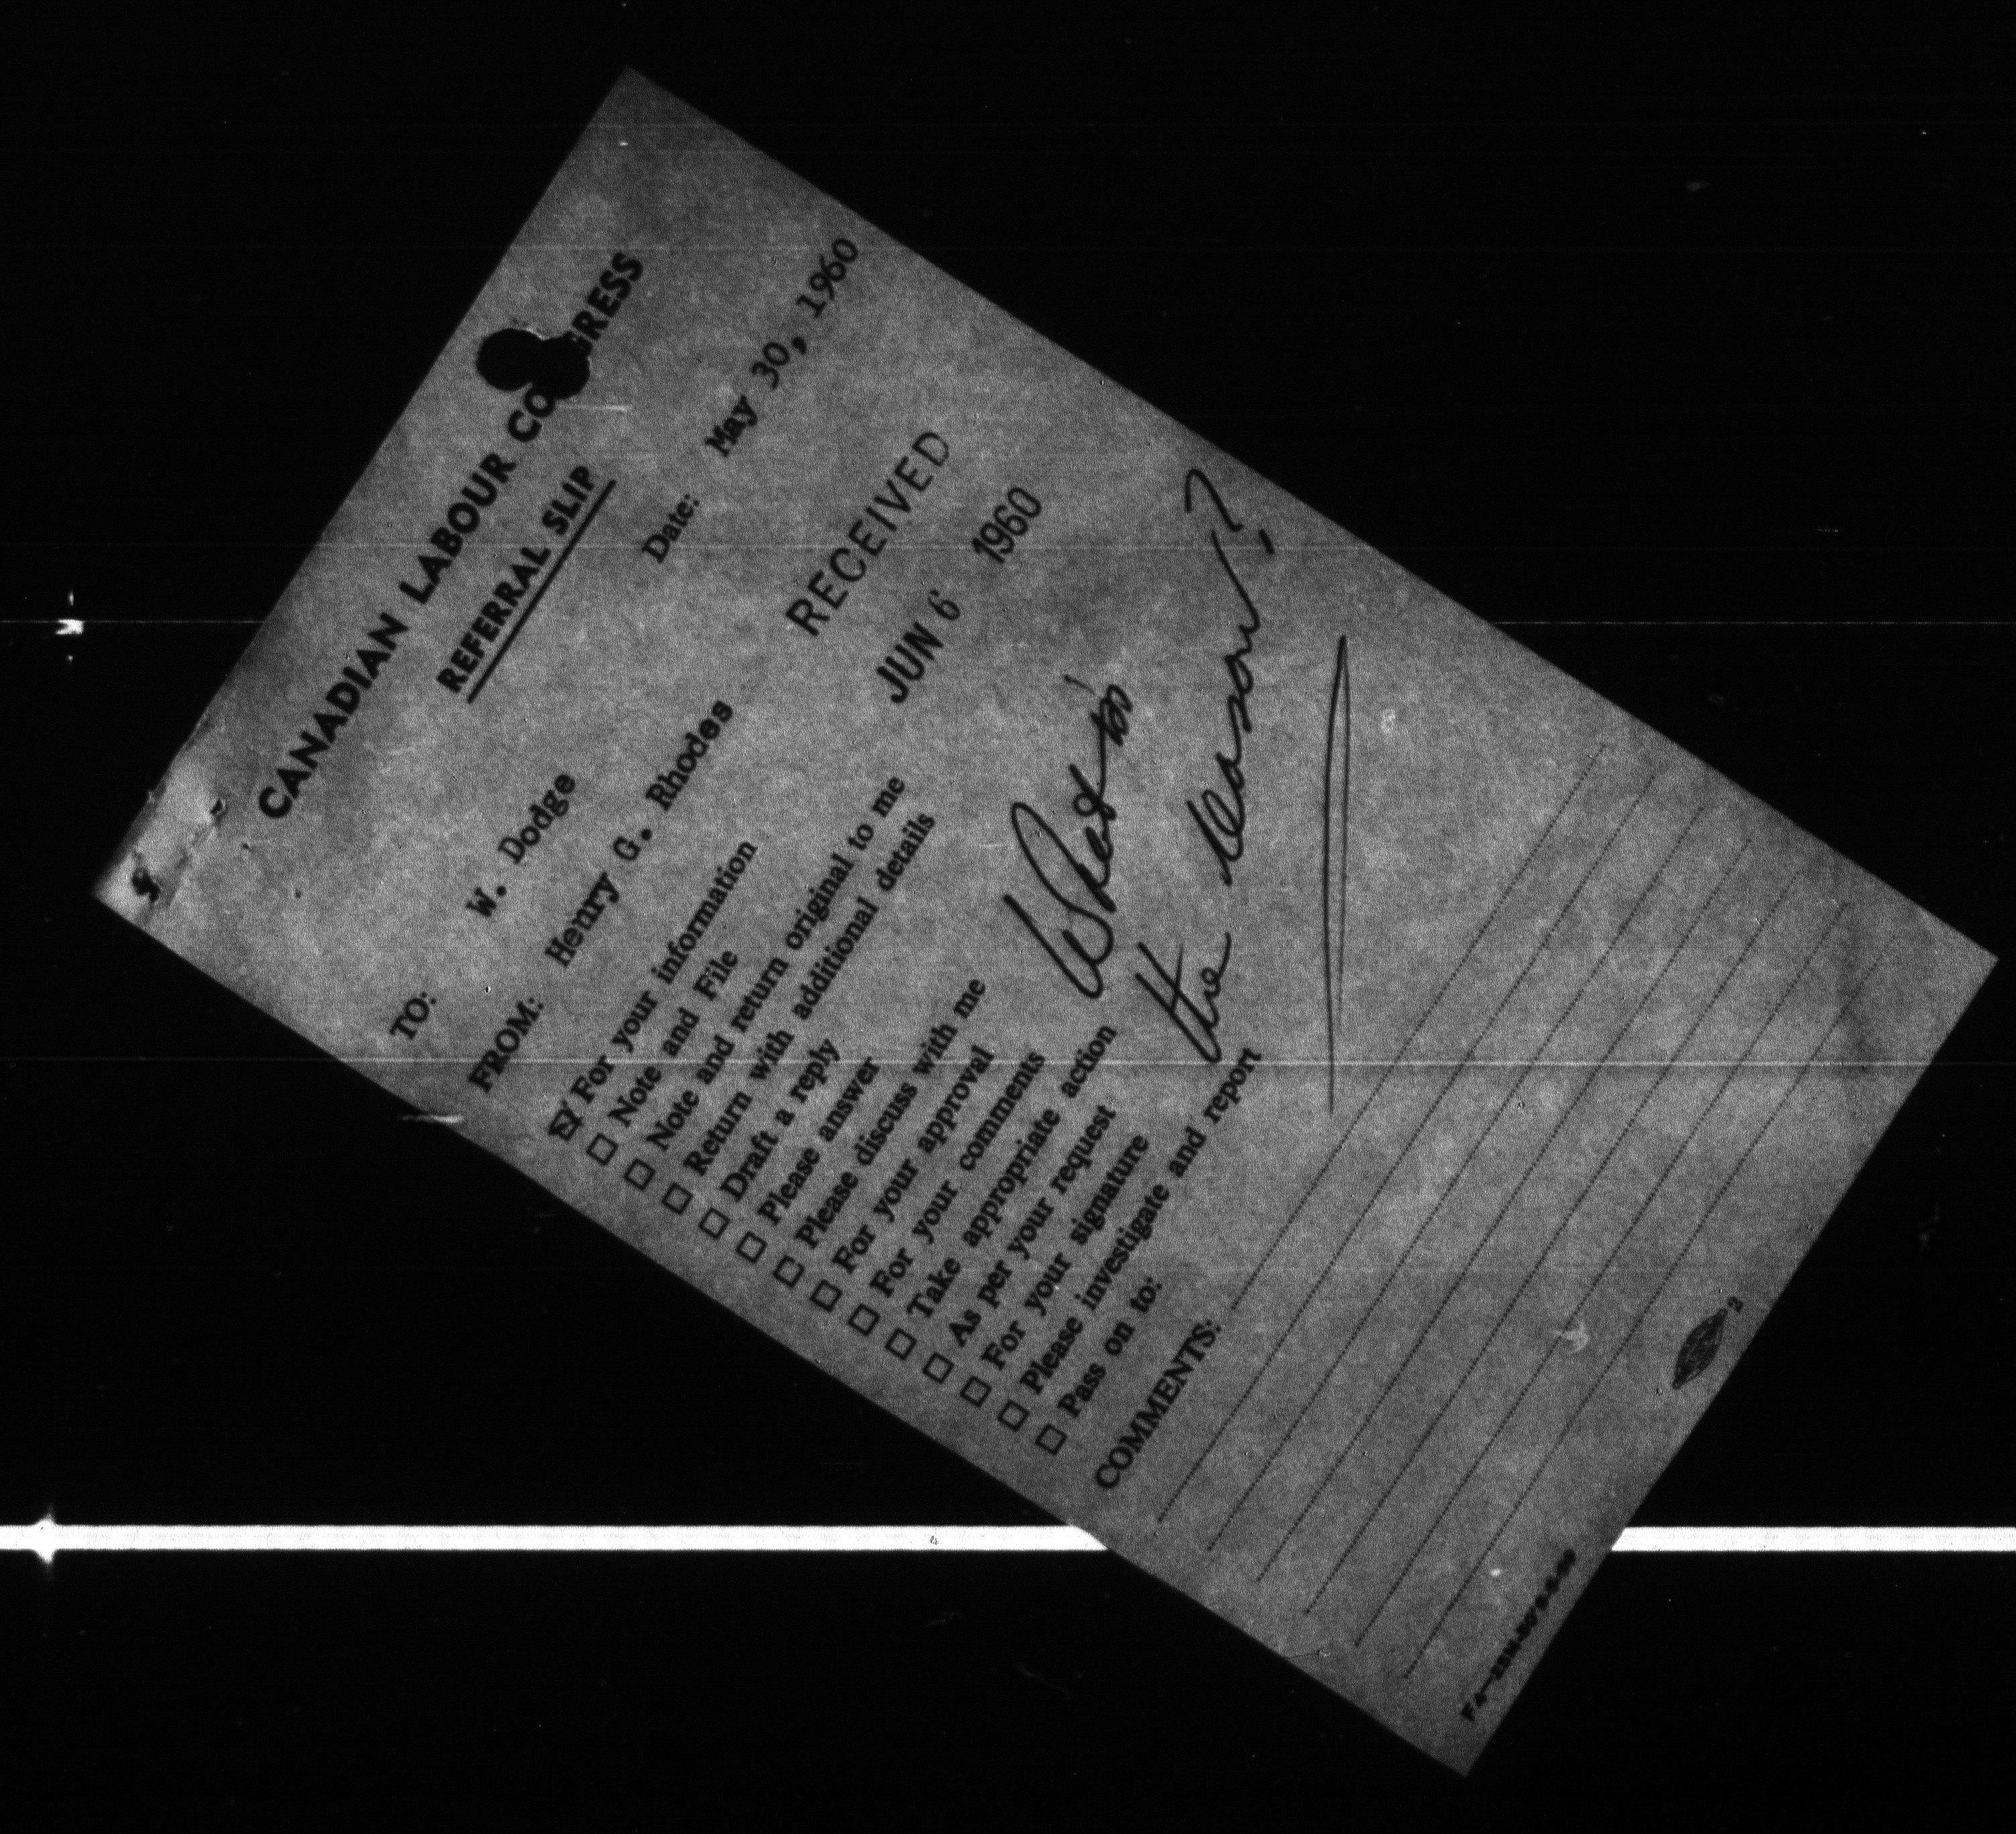 CANADIAN LABOUR CO GRESS
REFERRAL SLIP
Date: May 30, 1960
TO: W. Dodge
FROM: Henry G. Rhodes
RECEIVED
JUN 6 1960
☑ For your information
☐ Note and File
☐ Note and return original to me
☐ Return with additional details
☐ Draft a reply
☐ Please answer
☐ Please discuss with me
☐ For your approval
☐ For your comments
☐ Take appropriate action
☐ As per your request
☐ For your signature
☐ Please investigate and report
☐ Pass on to:
What is
the reason?
COMMENTS:
2